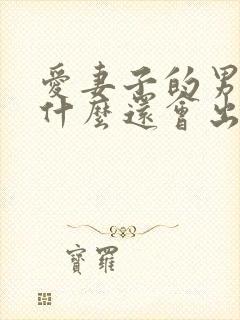 愛妻子的男
什麼還會出
寶羅